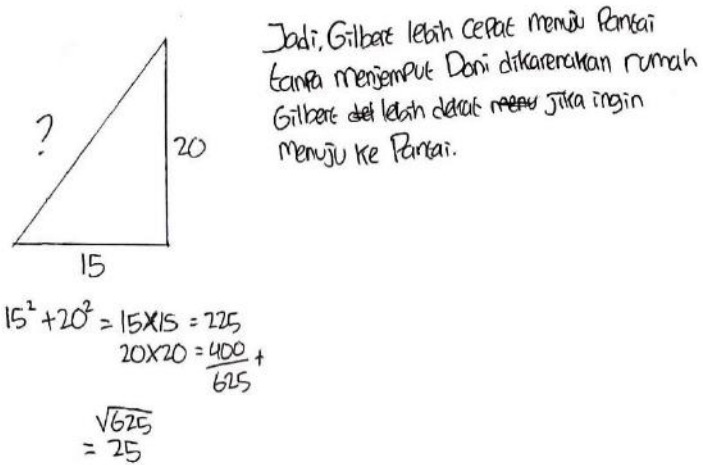 Jadi, Gilbert lebih cepat menuju Pantai
tanpa menjemput Doni dikarenakan rumah
Gilbert lebih dekat jika ingin
menuju ke Pantai.
?
20
15
15² + 20² = 15×15 = 225
20×20 = 400 +
625
√625
= 25